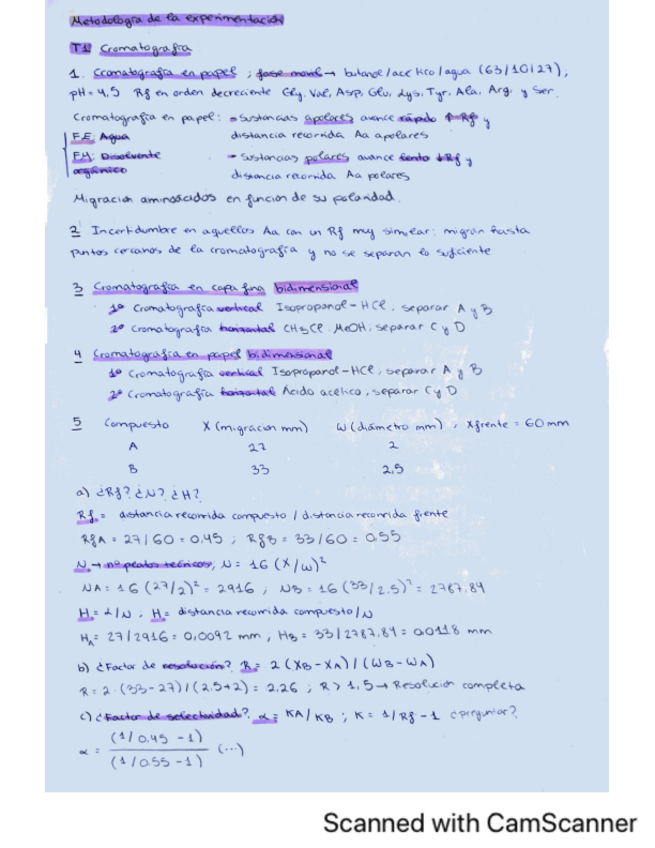 Metodología de la experimentación
T1 Cromatografía
1. Cromatografía en papel ; fase movil → butanol/acético/agua (63/10/27),
pH = 4,5 Rf en orden decreciente Gly, Val, Asp, Glu, Lys, Tyr, Ala, Arg y Ser.
Cromatografía en papel: → Sustancias apolares avance rápido ↑ Rf y
F.E: Agua distancia recorrida Aa apolares
F.M: Disolvente → Sustancias polares avance lento ↓Rf y
orgánico distancia recorrida Aa polares
Migración aminoácidos en función de su polaridad.
2 Incertidumbre en aquellos Aa con un Rf muy similar: migran hasta
puntos cercanos de la cromatografía y no se separan lo suficiente
3 Cromatografía en capa fina bidimensional
1º Cromatografía vertical Isopropanol-HCl, separar A y B
2º Cromatografía horizontal CH3Cl MeOH, separar C y D
4 Cromatografía en papel bidimensional
1º Cromatografía vertical Isopropanol-HCl, separar A y B
2º Cromatografía horizontal Ácido acético, separar C y D
5 Compuesto X (migración mm) W (diámetro mm) , Xfrente = 60 mm
A 27 2
B 33 2,5
a) ¿Rf? ¿N? ¿H?
Rf = distancia recorrida compuesto / distancia recorrida frente
RfA = 27/60 = 0.45 ; RfB = 33/60 = 0.55
N → nº platos teóricos, N = 16 (X/W)²
NA = 16 (27/2)² = 2916 ; NB = 16 (33/2.5)² = 2787.84
H = L/N ; H = distancia recorrida compuesto/N
HA = 27/2916 = 0,0092 mm , HB = 33/2787.84 = 0.0118 mm
b) ¿Factor de resolución? R = 2 (XB - XA) / (WB - WA)
R = 2 · (33-27) / (2.5+2) = 2.26 ; R > 1,5 → Resolución completa
c) ¿Factor de selectividad?, α = KA/KB ; K = 1/Rf - 1 ¿preguntar?
α = (1/0.45 - 1) / (1/0.55 - 1) (...)
Scanned with CamScanner